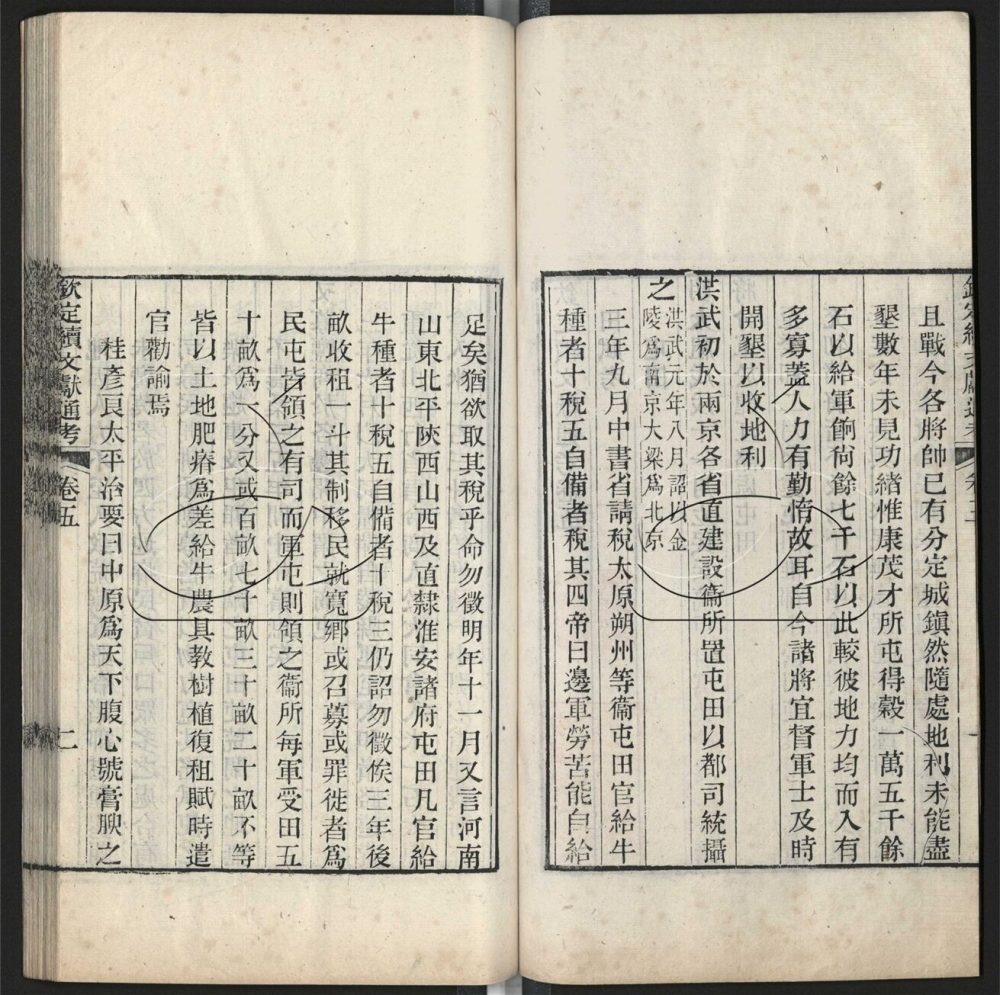 且戰今各將帥已有分定城鎮然隨處地利未能盡
墾數年未見功緒惟康茂才所屯得穀一萬五千餘
石以給軍餉尚餘七千石以此較彼地力均而入有
多寡蓋人力有勤惰故耳自今諸將宜督軍士及時
開墾以收地利
洪武初於兩京各省直建設衞所置屯田以都司統攝
之洪武元年八月詔以金
陵爲南京大梁爲北京
三年九月中書省請稅太原朔州等衞屯田官給牛
種者十稅五自備者稅其四帝曰邊軍勞苦能自給
足矣猶欲取其稅乎命勿徵明年十一月又言河南
山東北平陝西山西及直隸淮安諸府屯田凡官給
牛種者十稅五自備者十稅三仍詔勿徵俟三年後
畝收租一斗其制移民就寬鄉或召募或罪徙者爲
民屯皆領之有司而軍屯則領之衞所每軍受田五
十畝爲一分又或百畝七十畝三十畝二十畝不等
皆以土地肥瘠爲差給牛農具教樹植復租賦時遣
官勸諭焉
桂彥良太平治要曰中原爲天下腹心號膏腴之
欽定續文獻通考 卷五 二